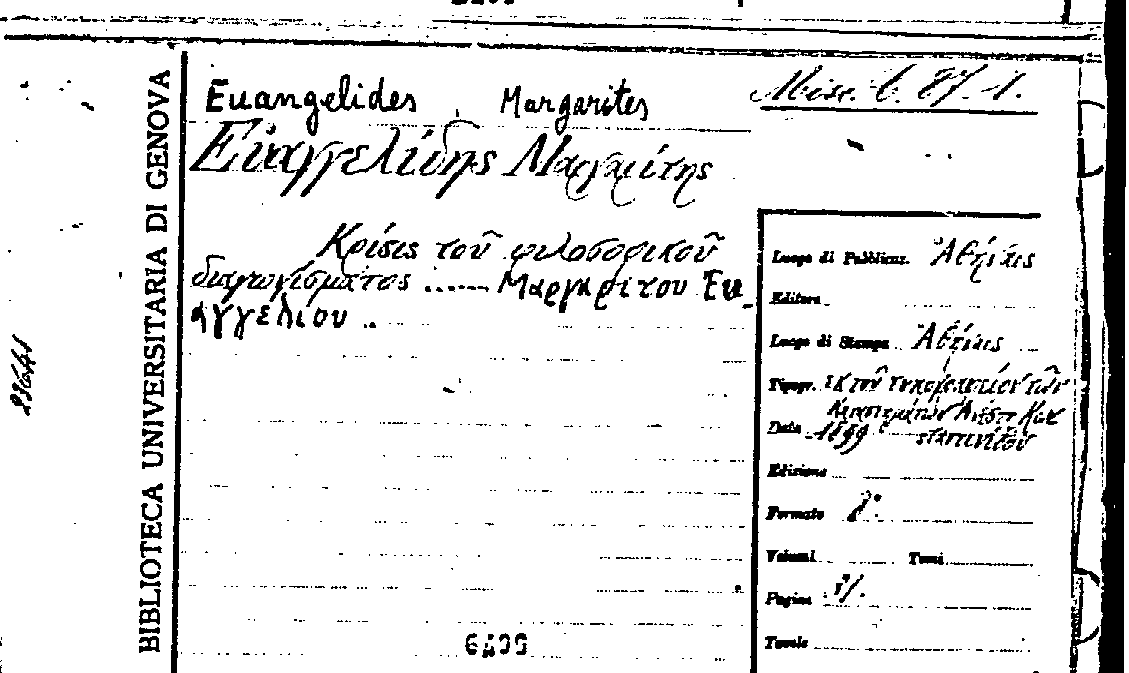 BIBLIOTECA UNIVERSITARIA DI GENOVA
Euangelides, Margarites
Misc. C. 87/1.
Εὐαγγελίδης Μαργαρίτης
Κρίσις τοῦ φιλοσοφικοῦ
διαγωνίσματος ...... Μαργαρίτου Ευ-
αγγελιου ..
Luogo di Pubblicaz. Ἀθῆναις
Editore
Luogo di Stampa Ἀθῆναις
Tipogr. ἐκ τοῦ τυπογραφείου τῶν
Data 1899
Edizione
Formato 8°.
Volumi Tomi
Pagine
Tavole